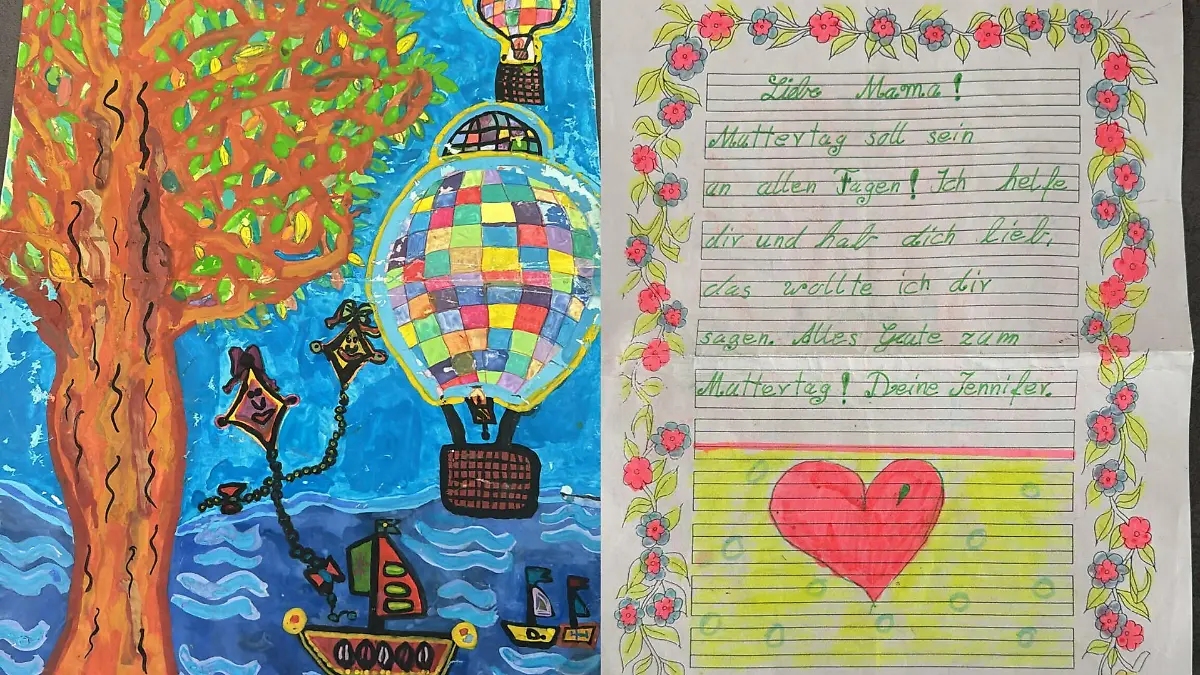 Liebe Mama!
Muttertag soll sein
an allen Fagen! Ich helfe
dir und hab dich lieb,
das wollte ich dir
sagen. Alles Gute zum
Muttertag! Deine Jennifer.